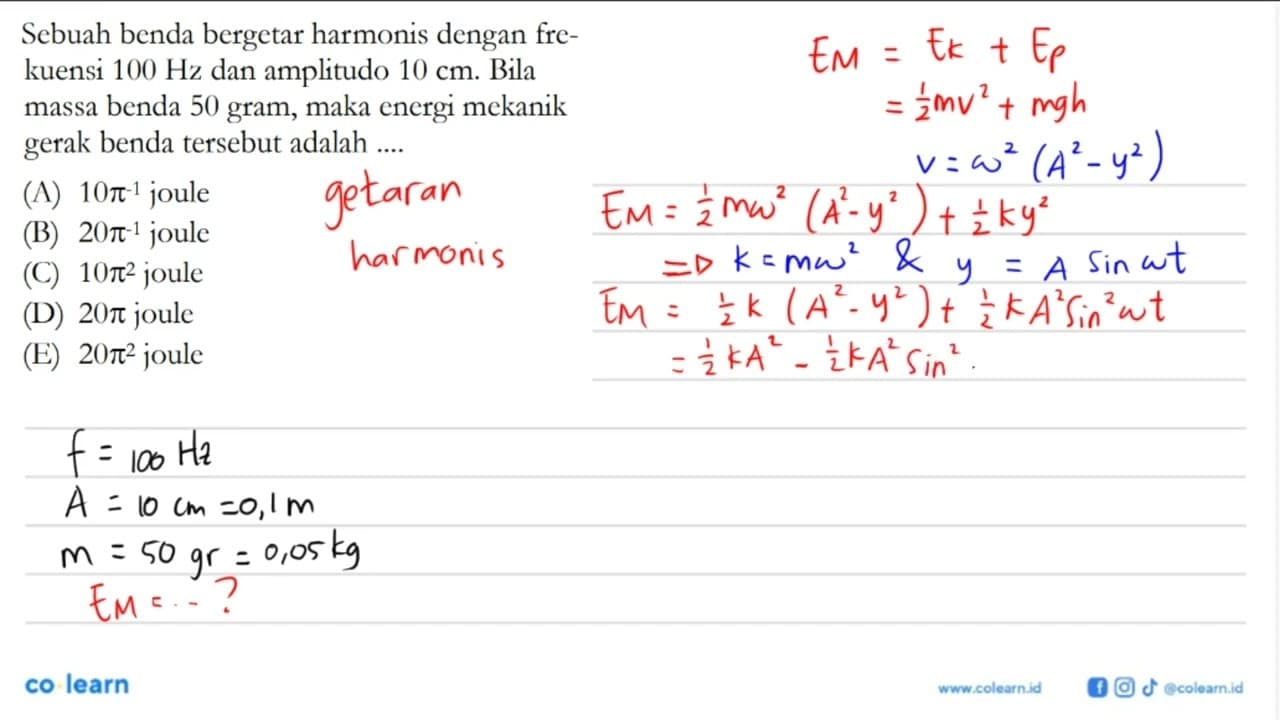 Sebuah benda bergetar harmonis dengan fre-
kuensi 100 Hz dan amplitudo 10 cm. Bila
massa benda 50 gram, maka energi mekanik
gerak benda tersebut adalah ....
(A) 10π⁻¹ joule
(B) 20π⁻¹ joule
(C) 10π² joule
(D) 20π joule
(E) 20π² joule
getaran
harmonis
EM = Ek + Ep
= ½mv² + mgh
v = ω² (A² - y²)
EM = ½ mω² (A² - y²) + ½ky²
=▷ k = mω² & y = A Sin ωt
EM = ½ k (A² - y²) + ½ k A² Sin² ωt
= ½ kA² - ½ kA² Sin² .
f = 100 Hz
A = 10 cm = 0,1 m
m = 50 gr = 0,05 kg
EM = ... ?
co learn
www.colearn.id
@colearn.id